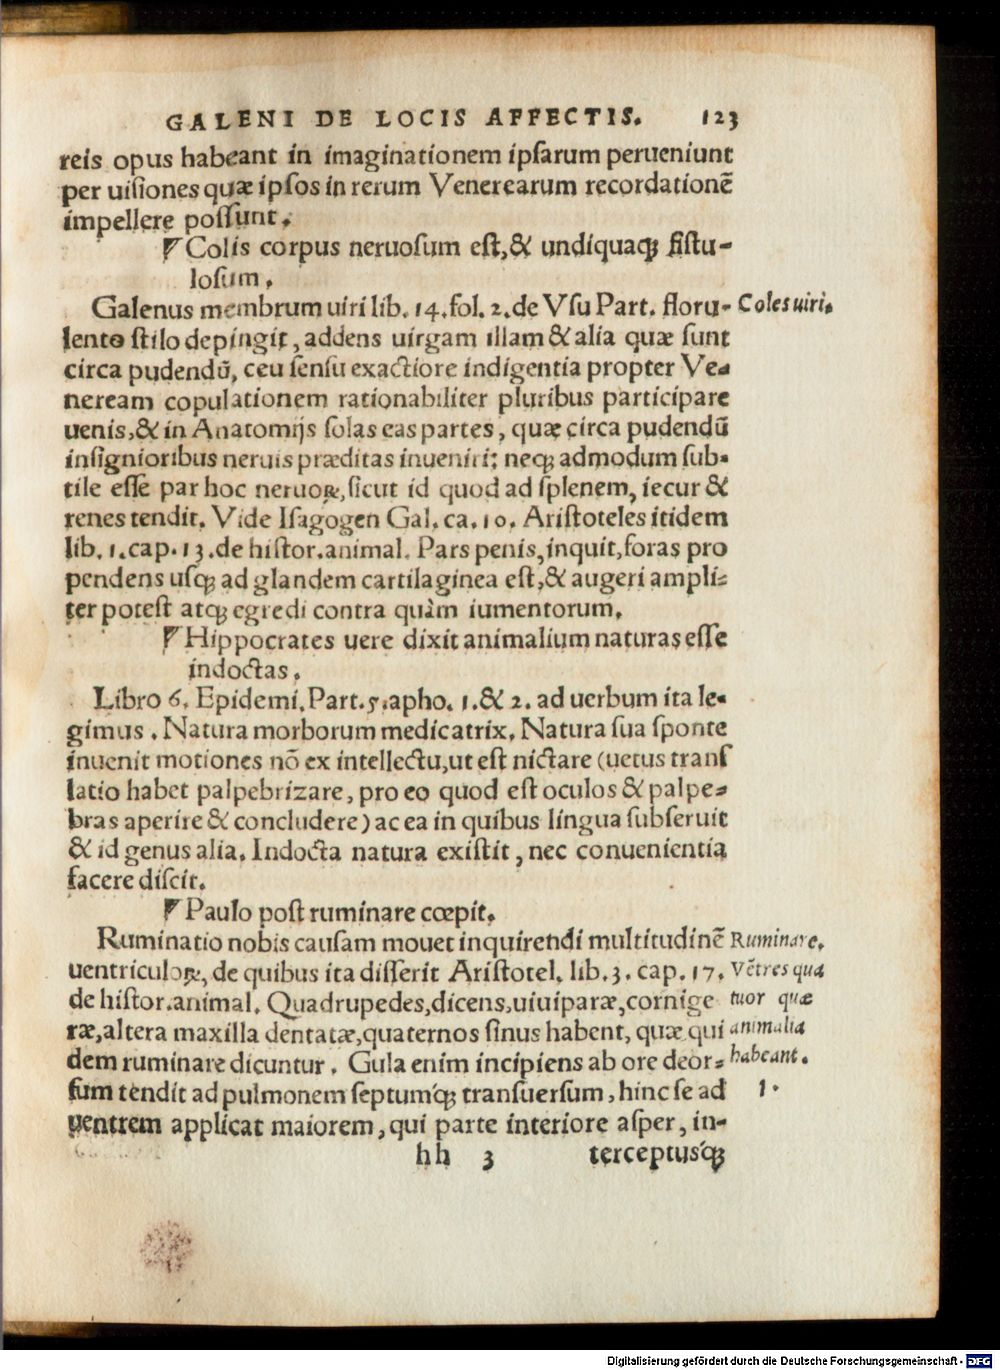 GALENI DE LOCIS AFFECTIS. 123
reis opus habeant in imaginationem ipsarum perueniunt
per uisiones quæ ipsos in rerum Venerearum recordationē
impellere possunt.
Colis corpus neruosum est, & undiquaqꝫ fistu-
losum.
Galenus membrum uiri lib. 14. fol. 2. de Vsu Part. floru-
Coles uiri.
lento stilo depingit, addens uirgam illam & alia quæ sunt
circa pudendū, ceu sensu exactiore indigentia propter Ve-
neream copulationem rationabiliter pluribus participare
uenis, & in Anatomijs solas eas partes, quæ circa pudendū
insignioribus neruis præditas inueniri: neqꝫ admodum sub-
tile esse par hoc neruoꝝ, sicut id quod ad splenem, iecur &
renes tendit. Vide Isagogen Gal. ca. 10. Aristoteles itidem
lib. 1. cap. 13. de histor. animal. Pars penis, inquit, foras pro
pendens usqꝫ ad glandem cartilaginea est, & augeri ampli-
ter potest atqꝫ egredi contra quàm iumentorum.
Hippocrates uere dixit animalium naturas esse
indoctas.
Libro 6. Epidemi. Part. 5. apho. 1. & 2. ad uerbum ita le-
gimus. Natura morborum medicatrix. Natura sua sponte
inuenit motiones nō ex intellectu, ut est nictare (uetus trans
latio habet palpebrizare, pro eo quod est oculos & palpe-
bras aperire & concludere) ac ea in quibus lingua subseruit
& id genus alia. Indocta natura existit, nec conuenientia
facere discit.
Paulo post ruminare cœpit.
Ruminatio nobis causam mouet inquirendi multitudinē
Ruminare.
uentriculoꝝ, de quibus ita disserit Aristotel. lib. 3. cap. 17.
Vētres qua
de histor. animal. Quadrupedes, dicens, uiuiparæ, cornige
tuor quæ
ræ, altera maxilla dentatæ, quaternos sinus habent, quæ qui
animalia
dem ruminare dicuntur. Gula enim incipiens ab ore deor-
habeant.
sum tendit ad pulmonem septumq́ꝫ transuersum, hinc se ad
1.
uentrem applicat maiorem, qui parte interiore asper, in-
hh 3 terceptusq́ꝫ
Digitalisierung gefördert durch die Deutsche Forschungsgemeinschaft - DFG